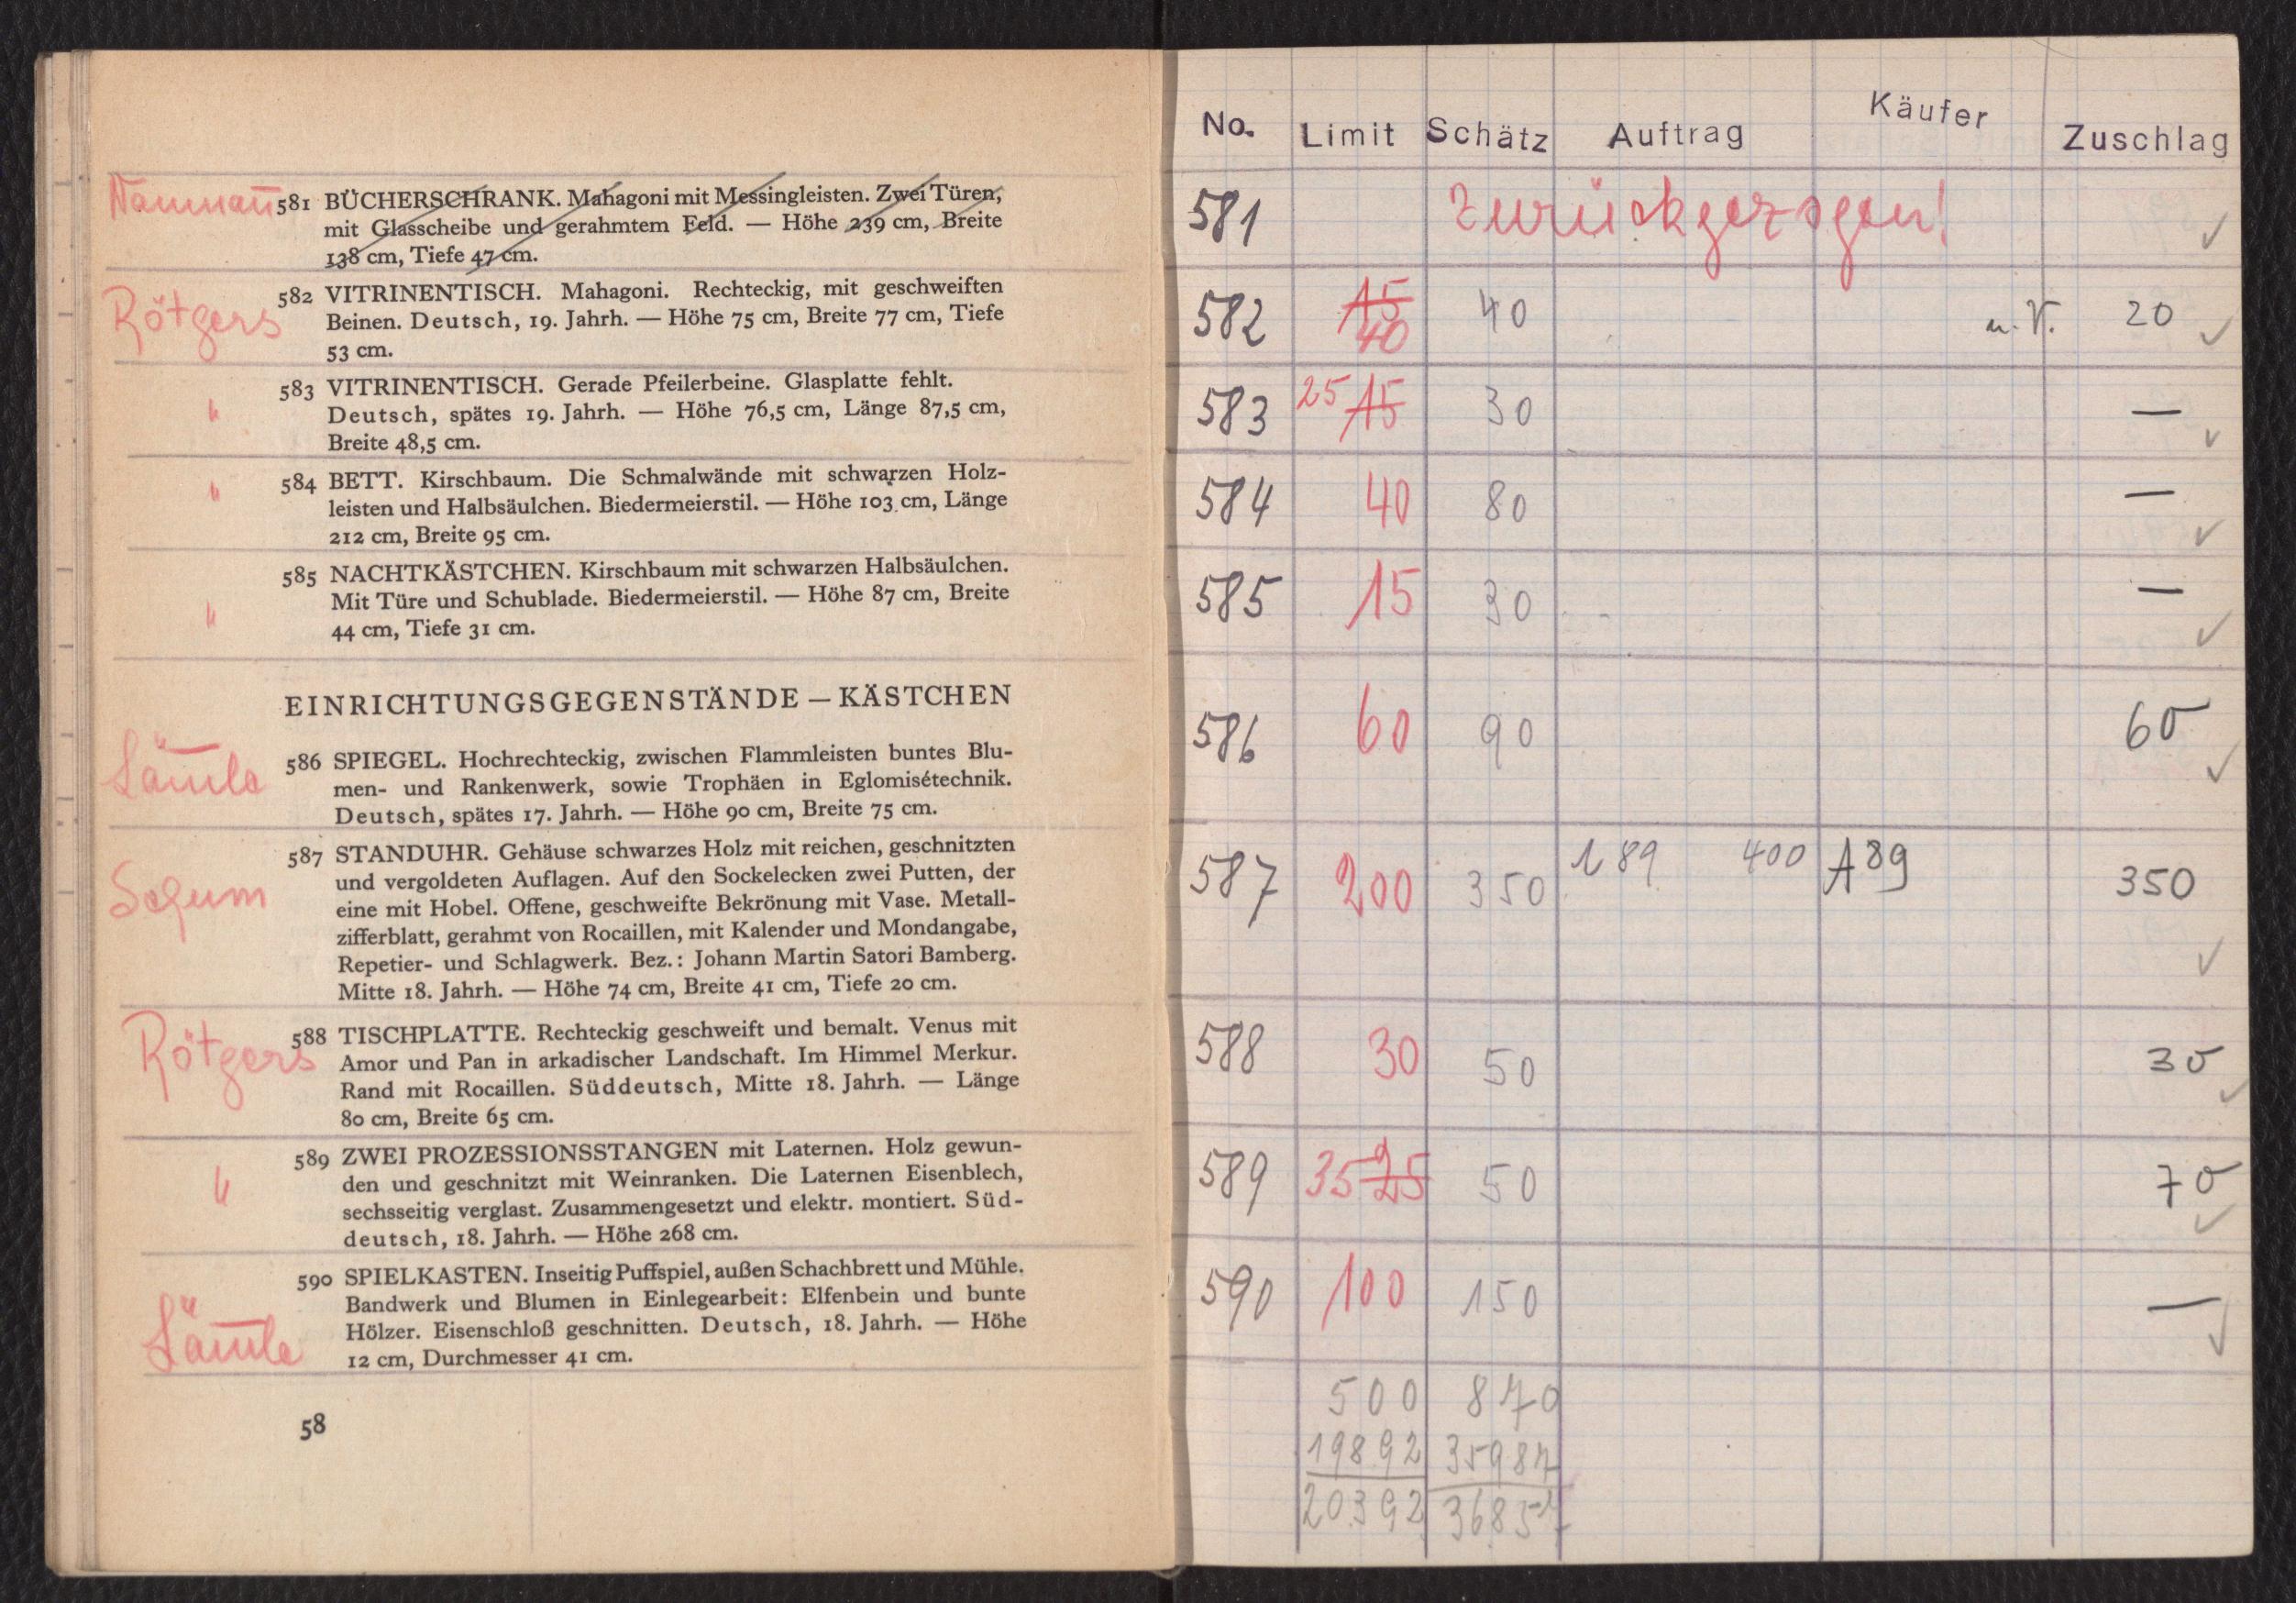 581 BÜCHERSCHRANK. Mahagoni mit Messingleisten. Zwei Türen,
mit Glasscheibe und gerahmtem Feld. — Höhe 239 cm, Breite
138 cm, Tiefe 47 cm.
Rötgers
582 VITRINENTISCH. Mahagoni. Rechteckig, mit geschweiften
Beinen. Deutsch, 19. Jahrh. — Höhe 75 cm, Breite 77 cm, Tiefe
53 cm.
" 583 VITRINENTISCH. Gerade Pfeilerbeine. Glasplatte fehlt.
Deutsch, spätes 19. Jahrh. — Höhe 76,5 cm, Länge 87,5 cm,
Breite 48,5 cm.
" 584 BETT. Kirschbaum. Die Schmalwände mit schwarzen Holz-
leisten und Halbsäulchen. Biedermeierstil. — Höhe 103 cm, Länge
212 cm, Breite 95 cm.
" 585 NACHTKÄSTCHEN. Kirschbaum mit schwarzen Halbsäulchen.
Mit Türe und Schublade. Biedermeierstil. — Höhe 87 cm, Breite
44 cm, Tiefe 31 cm.
EINRICHTUNGSGEGENSTÄNDE — KÄSTCHEN
586 SPIEGEL. Hochrechteckig, zwischen Flammleisten buntes Blu-
men- und Rankenwerk, sowie Trophäen in Eglomisétechnik.
Deutsch, spätes 17. Jahrh. — Höhe 90 cm, Breite 75 cm.
587 STANDUHR. Gehäuse schwarzes Holz mit reichen, geschnitzten
und vergoldeten Auflagen. Auf den Sockelecken zwei Putten, der
eine mit Hobel. Offene, geschweifte Bekrönung mit Vase. Metall-
zifferblatt, gerahmt von Rocaillen, mit Kalender und Mondangabe,
Repetier- und Schlagwerk. Bez.: Johann Martin Satori Bamberg.
Mitte 18. Jahrh. — Höhe 74 cm, Breite 41 cm, Tiefe 20 cm.
Rötgers
588 TISCHPLATTE. Rechteckig geschweift und bemalt. Venus mit
Amor und Pan in arkadischer Landschaft. Im Himmel Merkur.
Rand mit Rocaillen. Süddeutsch, Mitte 18. Jahrh. — Länge
80 cm, Breite 65 cm.
" 589 ZWEI PROZESSIONSSTANGEN mit Laternen. Holz gewun-
den und geschnitzt mit Weinranken. Die Laternen Eisenblech,
sechsseitig verglast. Zusammengesetzt und elektr. montiert. Süd-
deutsch, 18. Jahrh. — Höhe 268 cm.
590 SPIELKASTEN. Inseitig Puffspiel, außen Schachbrett und Mühle.
Bandwerk und Blumen in Einlegearbeit: Elfenbein und bunte
Hölzer. Eisenschloß geschnitten. Deutsch, 18. Jahrh. — Höhe
12 cm, Durchmesser 41 cm.
58
No. Limit Schätz Auftrag Käufer Zuschlag
581 Zurückgezogen! ✓
582 15 40 40 u. V. 20 ✓
583 25 15 30 — ✓
584 40 80 — ✓
585 15 30 — ✓
586 60 90 60 ✓
587 200 350 189 400 A 89 350 ✓
588 30 50 30 ✓
589 35 25 50 70 ✓
590 100 150 — ✓
500 870
19892 35987
20392 36857